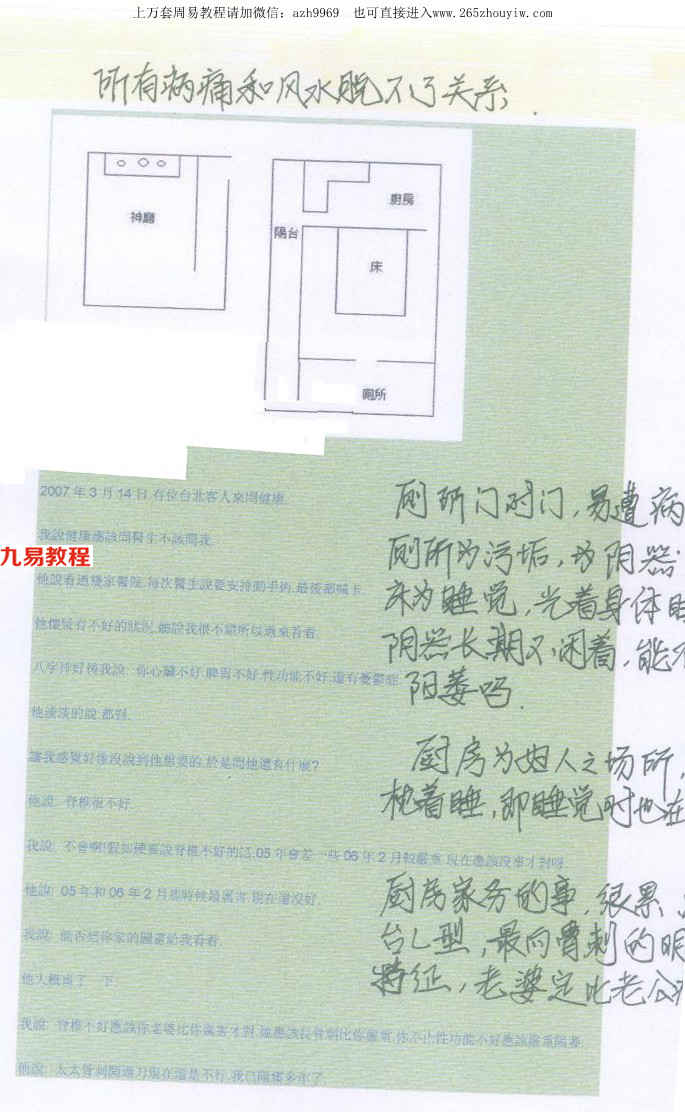 上万套周易教程请加微信：azh9969　也可直接进入www.265zhouyiw.com
所有病痛和风水脱不了关系.
神廳
廚房
陽台
床
廁所
2007年3月14日,有位台北客人來問健康.
我說健康應該問醫生不該問我.
九易教程
他說看過幾家醫院,每次醫生說要安排開手術,最後都喊卡.
他懷疑有不好的狀況,聽說我很不錯所以過來看看.
八字排好後我說: 你心臟不好,脾胃不好,性功能不好,還有憂鬱症
他淡淡的說,都對.
讓我感覺好像沒說到他想要的,於是問他還有什麼?
他說: 脊椎很不好.
我說: 不會啊!假如硬要說脊椎不好的話,05年會差一些06年2月較嚴重,現在應該沒事才對呀
他說: 05年和06年2月那時候最厲害,現在還沒好.
我說: 能否把你家的圖畫給我看看.
他大概畫了一下.
我說: 脊椎不好應該你老婆比你厲害才對,她應該長骨刺比你嚴重,你不止性功能不好應該嚴重陽萎.
他說: 太太骨刺開過刀現在還是不行,我已陽痿多年了.
厕所门对门,易遭病
厕所为污垢,为阴器
床为睡觉,光着身体
阴器长期又闲着,能不
阳萎吗.
厨房为妇人之场所,
枕着睡,即睡觉时也在
厨房家务的事,很累,
台L型,最向骨刺的明
特征,老婆定比老公